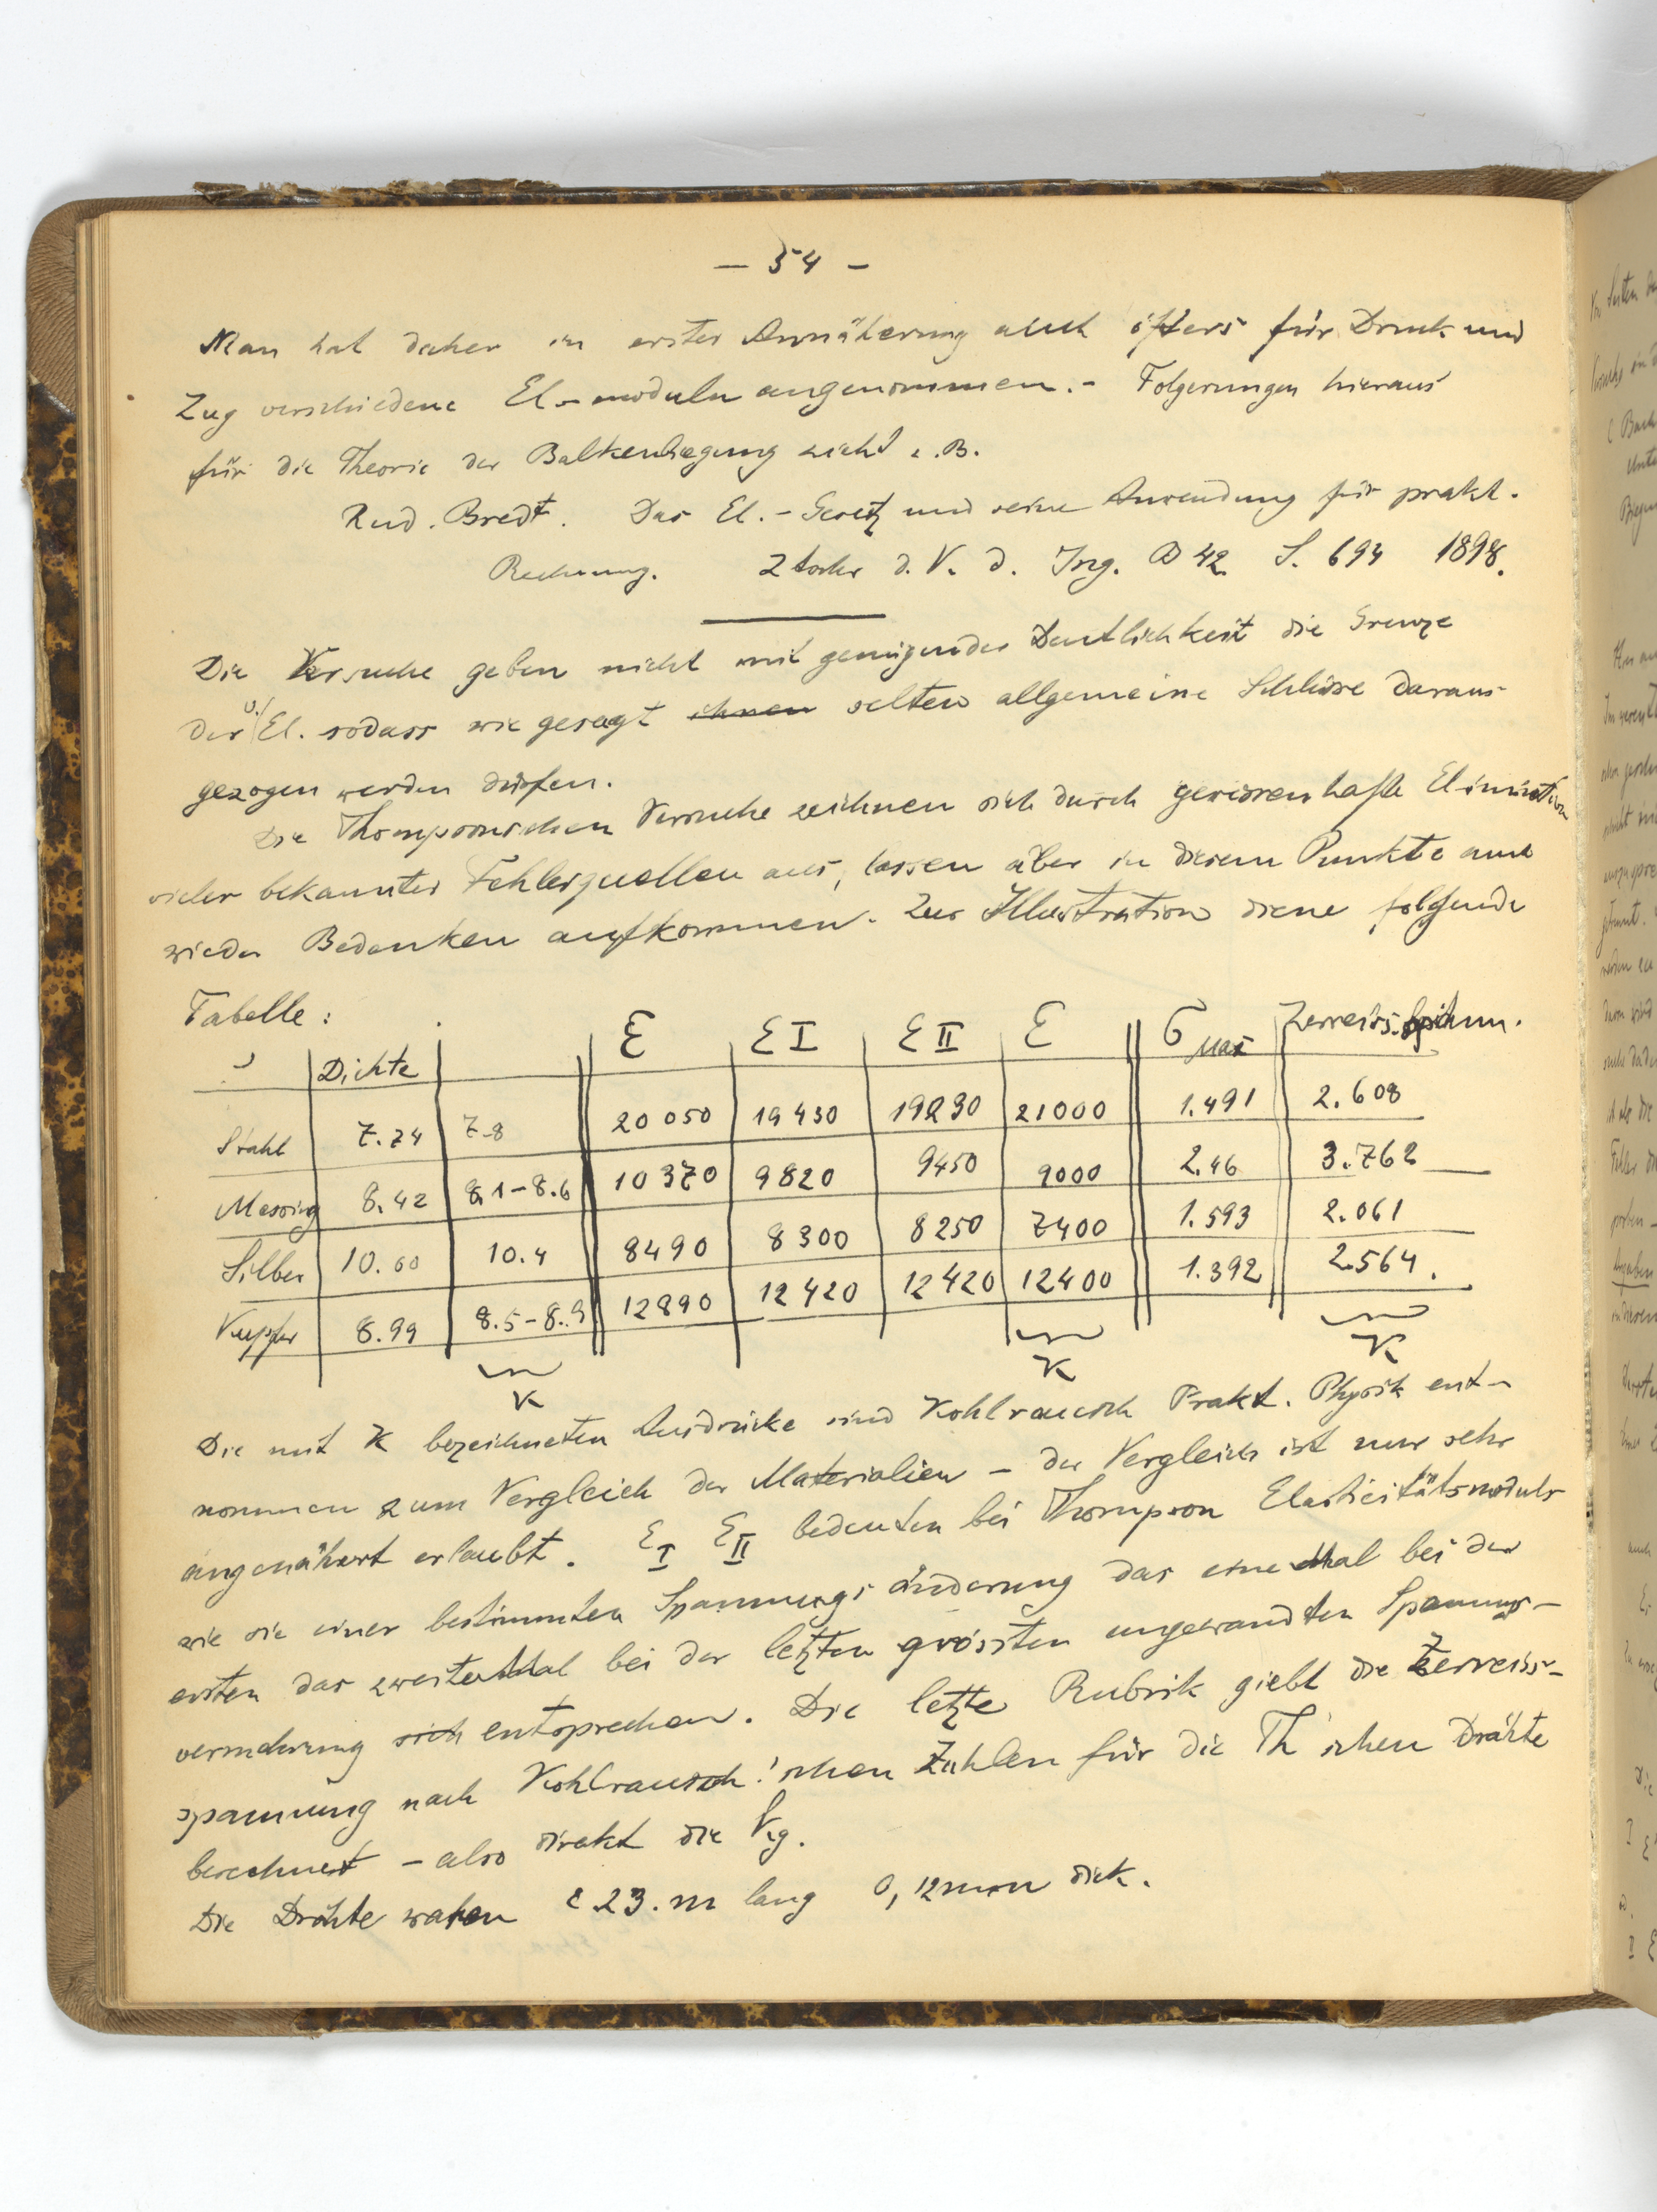 — 54 –
Man hat daher in erster Annäherung auch öfters für Druck und
Zug verschiedene El-moduln angenommen. – Folgerungen hieraus
für die Theorie der Balkenbiegung zieht z. B.
Rud. Bredt. Das El. - Gesetz und seine Anwendung für prakt.
Rechnung. Ztschr d. V. d. Ing. B 42 S. 694 1898.
Die Versuche geben nicht mit genügender Deutlichkeit die Grenze
der v. El. sodass wie gesagt selten allgemeine Schlüsse daraus
gezogen werden dürfen.
Die Thompsonschen Versuche zeichnen sich durch gewissenhafte Elimination
vieler bekannter Fehlerquellen aus, lassen aber in diesem Punkte auch
wieder Bedenken aufkommen. Zur Illustration diene folgende
Tabelle:
Dichte E E I E II E σ Max Zerreiss. Spann.
Stahl 7.74 7-8 20 050 19 430 19230 21000 1.491 2.608
Messing 8.42 8.1-8.6 10370 9820 9450 9000 2.46 3.762
Silber 10.60 10.4 8490 8300 8250 7400 1.593 2.061
Kupfer 8.99 8.5-8.9 12890 12420 12420 12400 1.392 2.564.
K K K
Die mit K bezeichneten Ausdrücke sind Kohlrausch Prakt. Physik ent-
nommen zum Vergleich der Materialien – der Vergleich ist nur sehr
angenähert erlaubt. E I E II bedeuten bei Thompson Elasticitätsmoduls
wie sie einer bestimmten Spannungsänderung das eine Mal bei der
ersten das zweite Mal bei der letzten grössten angewandten Spannungs-
vermehrung sich entsprechen. Die letzte Rubrik giebt die Zerreiss-
spannung nach Kohlrausch'schen Zahlen für die Th'schen Drähte
berechnet – also direkt die Kg.
Die Drähte waren c 23. m lang 0,12 mm dick.